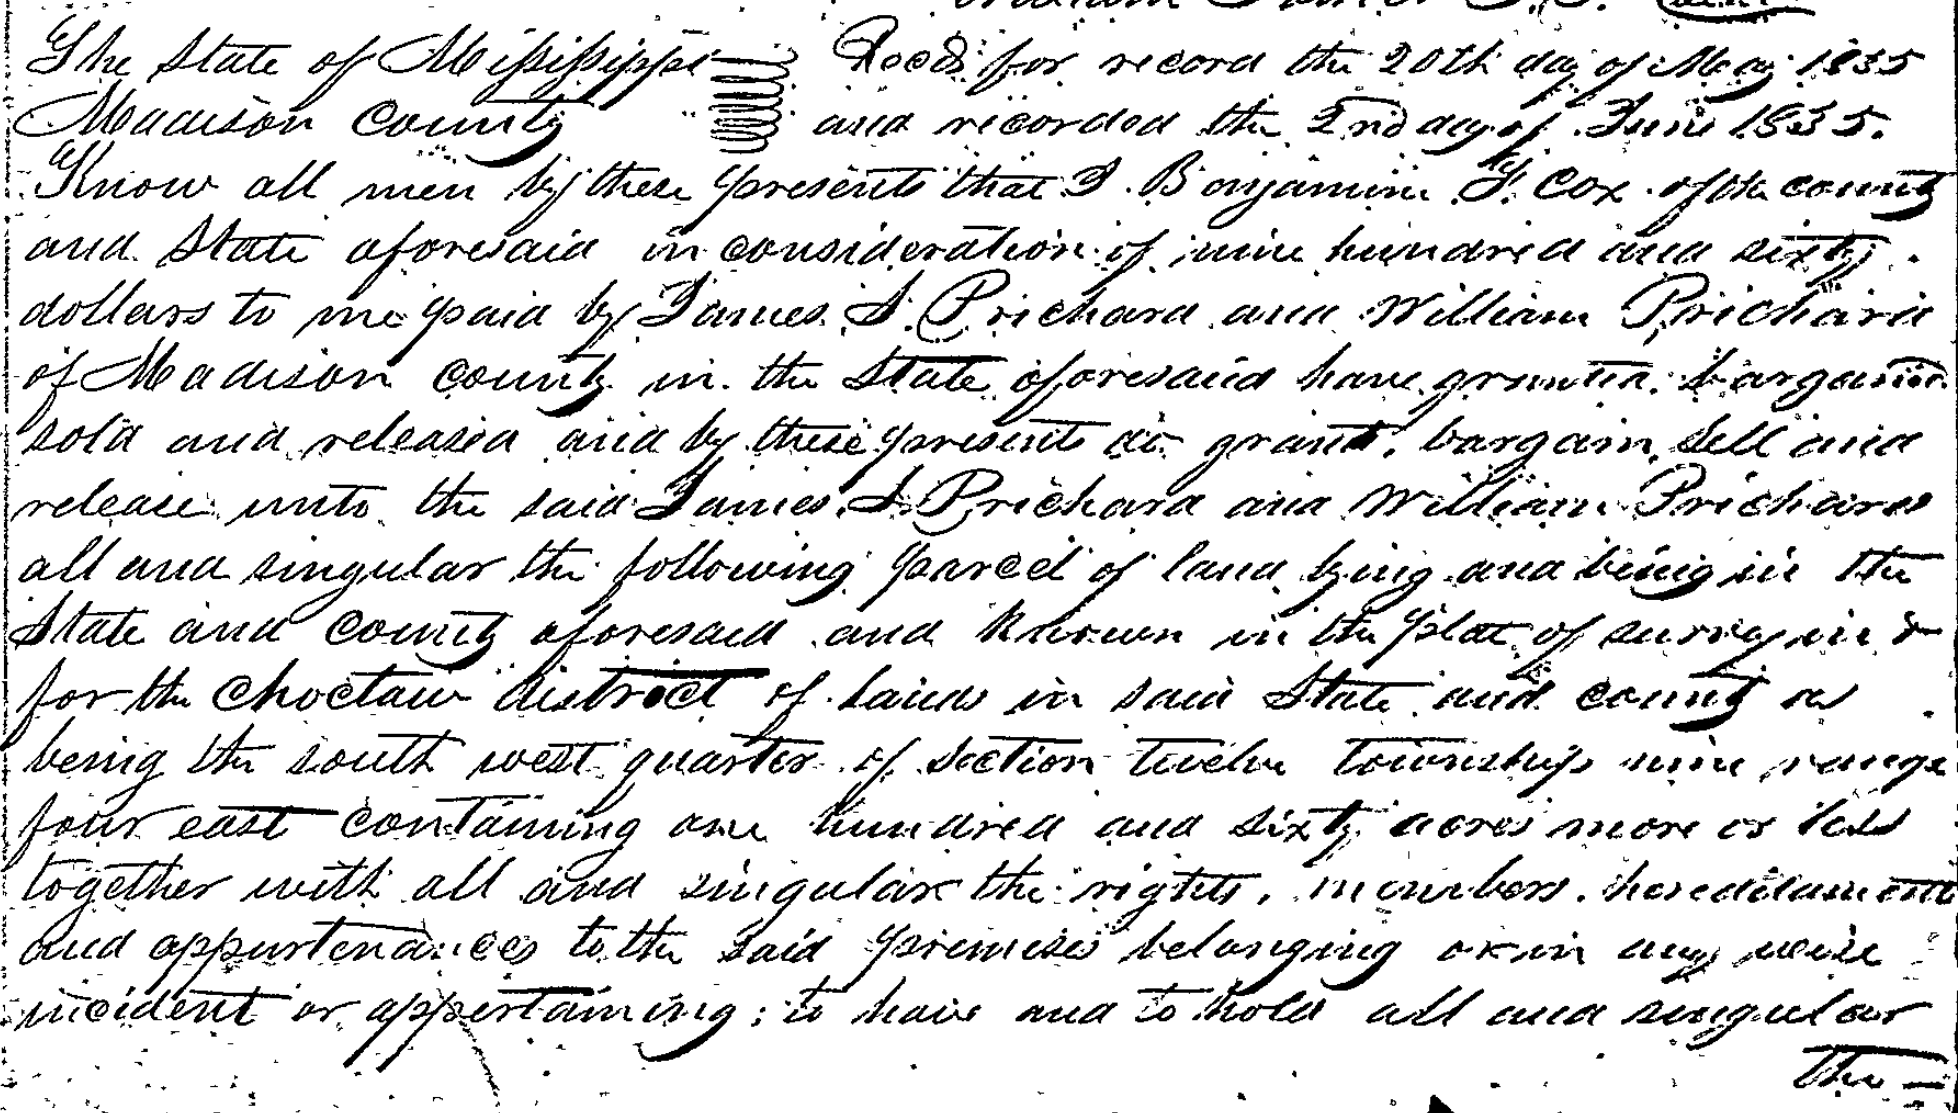 The State of Mississippi Recd for record the 20th day of May 1835
Madison County and recorded the 2nd day of June 1835.
Know all men by these presents that I. Benjamin F. Cox of the county
and State aforesaid in consideration of nine hundred and sixty
dollars to me paid by James S. Prichard and William Prichard
of Madison county in the State aforesaid have granted, bargained
sold and released and by these presents do grant, bargain, Sell and
release unto the said James S. Prichard and William Prichard
all and singular the following parcel of land lying and being in the
State and County aforesaid and known in the plat of survey in &
for the Choctaw district of lands in said State and county as
being the south west quarter of Section twelve township nine range
four east containing one hundred and sixty acres more or less
together with all and singular the rights, members, hereditaments
and appurtenances to the said premises belonging or in any wise
incident or appertaining; to have and to hold all and singular
the